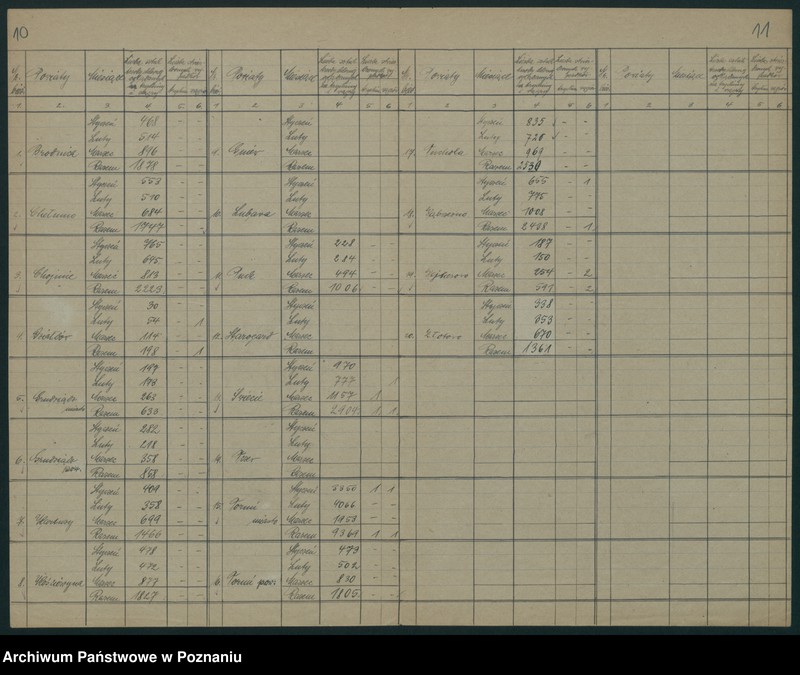 10
11
Powiaty Miesiące
Powiaty Miesiące
Powiaty Miesiące
Powiaty Miesiące
1. 2. 3. 4. 5. 6.
1. 2. 3. 4. 5 6
1. 2. 3. 4. 5. 6
1. 2. 3. 4. 5. 6.
Styczeń 468 - -
Luty 514 - -
1. Brodnica Marzec 896 - -
Razem 1878 - -
Styczeń 553 - -
Luty 510 - -
2. Chełmno Marzec 684 - -
Razem 1747 -
Styczeń 765 - -
Luty 645 - -
3. Chojnice Marzec 813 - -
Razem 2223 - -
Styczeń 30 - -
Luty 54 - 1
4. Marzec 114 - -
Razem 198 - 1
Styczeń
Luty
5. Grudziądz miasto Marzec
Razem 633 - -
Styczeń 282 - -
Luty 218 - -
6. Grudziądz pow. Marzec 358 - -
Razem 858 - -
Styczeń 409 - -
Luty 358 - -
7. Marzec 699 - -
Razem 1466 - -
Styczeń 478 - -
Luty 472 - -
8. Marzec 877 - -
Razem 1827 - -
Styczeń
Luty
Marzec
Razem
Styczeń
Luty
10. Lubawa Marzec
Razem
Styczeń 228 - -
Luty 284 - -
11. Puck Marzec 494 - -
Razem 1006 - -
Styczeń
Luty
12. Starogard Marzec
Razem
Styczeń 970
Luty 777 1
13. Świecie Marzec 1157 1
Razem 2904 1 1
Styczeń
Luty
14. Tczew Marzec
Razem
Styczeń 1 1
Luty 4066 - -
15. Toruń miasto Marzec - -
Razem 1 1
Styczeń 473 - -
Luty 502 - -
16. Toruń pow. Marzec 830 - -
Razem 1805 - -
Styczeń 835 - -
Luty 728 -
17. Tuchola Marzec 969 - -
Razem - -
Styczeń 655 - 1
Luty 775 - -
18. Wąbrzeźno Marzec 1008 - -
Razem - 1
Styczeń 187 - -
Luty 150 - -
19. Marzec 254 - 2
Razem 591 - 2
Styczeń 338 - -
Luty 353 - -
20. Marzec 670 - -
Razem 1361 - -
Archiwum Państwowe w Poznaniu